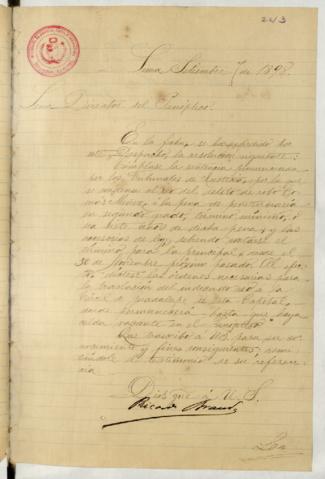 243
Lima Setiembre 7 de 1898.
Señor Director del Panóptico.
En la fecha se ha expedido por
este Despacho, la resolución siguiente:
"Cúmplase la sentencia pronunciada
por los Tribunales de Justicia, por la que
se condena al reo del delito de robo
á la pena de penitenciaría
en segundo grado, término mínimo, ó
sea siete años de dicha pena, y las
accesorias de ley, debiendo contarse el
término para la principal, desde el
30 de Noviembre último pasado. Al efec-
to, las órdenes necesarias para
la traslación del indicado reo á la
Cárcel de Guadalupe de esta Capital,
donde permanecerá hasta que haya
celda vacante en el
Que trascribo á US. para su co-
nocimiento y fines consiguientes,
de testimonio de su referen-
cia.
Dios gue á U. S.
Ricardo